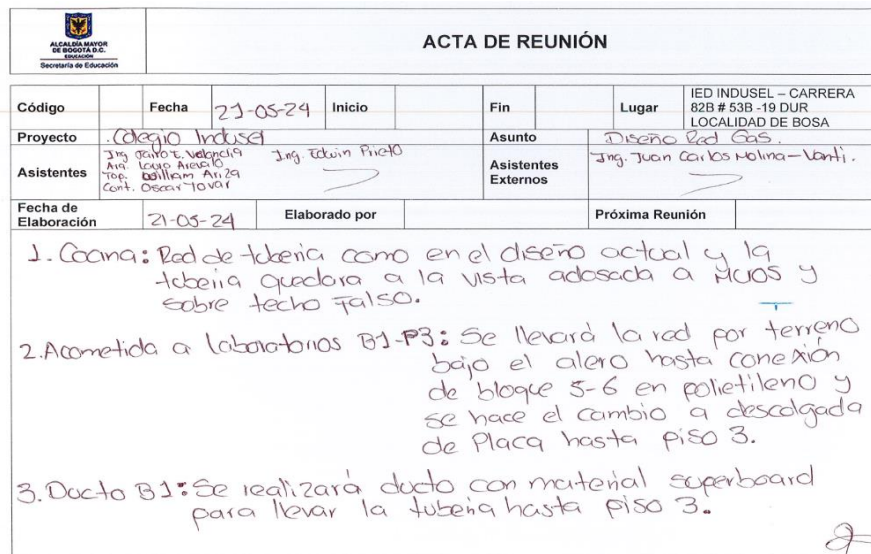 ALCALDÍA MAYOR
DE BOGOTÁ D.C.
EDUCACIÓN
Secretaría de Educación
ACTA DE REUNIÓN
Código Fecha 21-05-24 Inicio Fin Lugar IED INDUSEL – CARRERA
82B # 53B -19 DUR
LOCALIDAD DE BOSA
Proyecto Colegio Indusel Asunto Diseño Red Gas.
Asistentes Ing Jairo E. Valencia Ing. Edwin Prieto
Arq. Laura Arevalo
Top. William Ariza
Cont. Oscar Tovar
Asistentes
Externos Ing. Juan Carlos Molina – Vanti.
Fecha de
Elaboración 21-05-24 Elaborado por Próxima Reunión
1. Cocina: Red de tuberia como en el diseño actual y la
tuberia quedara a la vista adosada a muros y
sobre techo Falso.
2. Acometida a laboratorios B1-P3: Se llevará la red por terreno
bajo el alero hasta conexión
de bloque 5-6 en polietileno y
se hace el cambio a descolgada
de Placa hasta piso 3.
3. Ducto B1: Se realizará ducto con material superboard
para llevar la tuberia hasta piso 3.